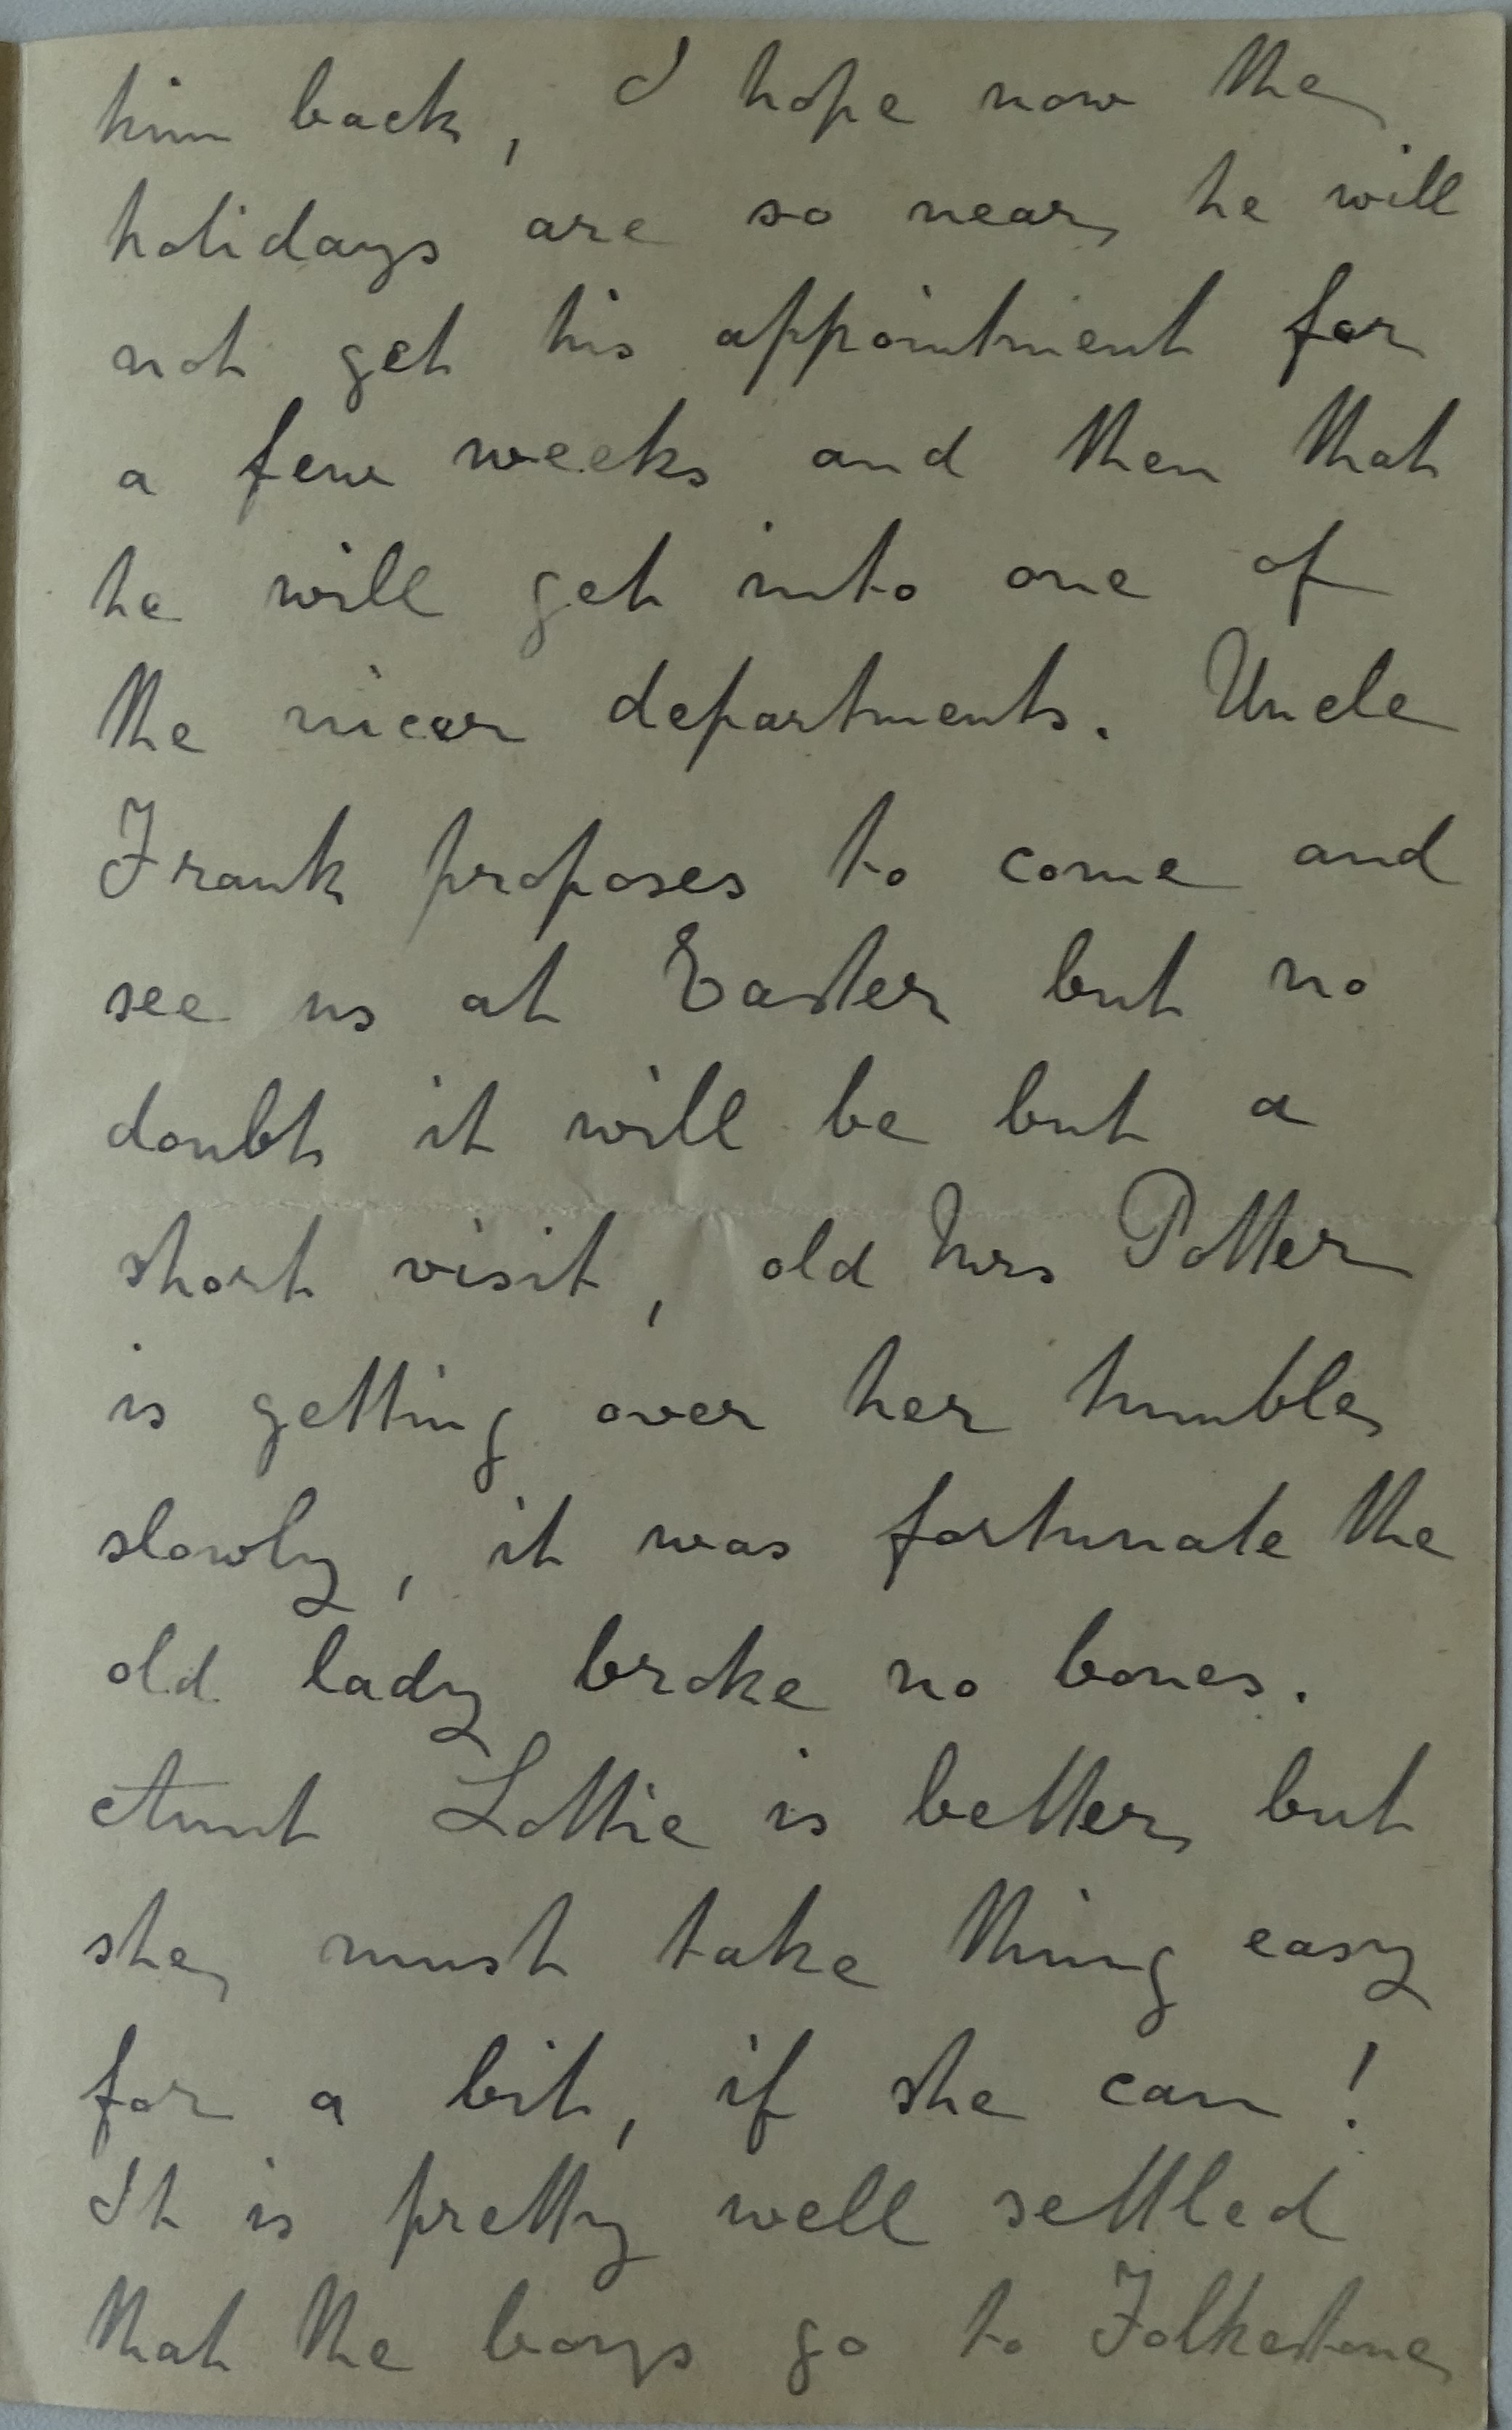 him back, I hope now the
holidays are so near he will
not get his appointment for
a few weeks and then that
he will get into one of
the nicer departments. Uncle
Frank proposes to come and
see us at Easter but no
doubt it will be but a
short visit, old Mrs Potter
is getting over her tumble
slowly, it was fortunate the
old lady broke no bones.
Aunt Lottie is better but
she must take thing easy
for a bit, if she can!
It is pretty well settled
that the boys go to Folkestone